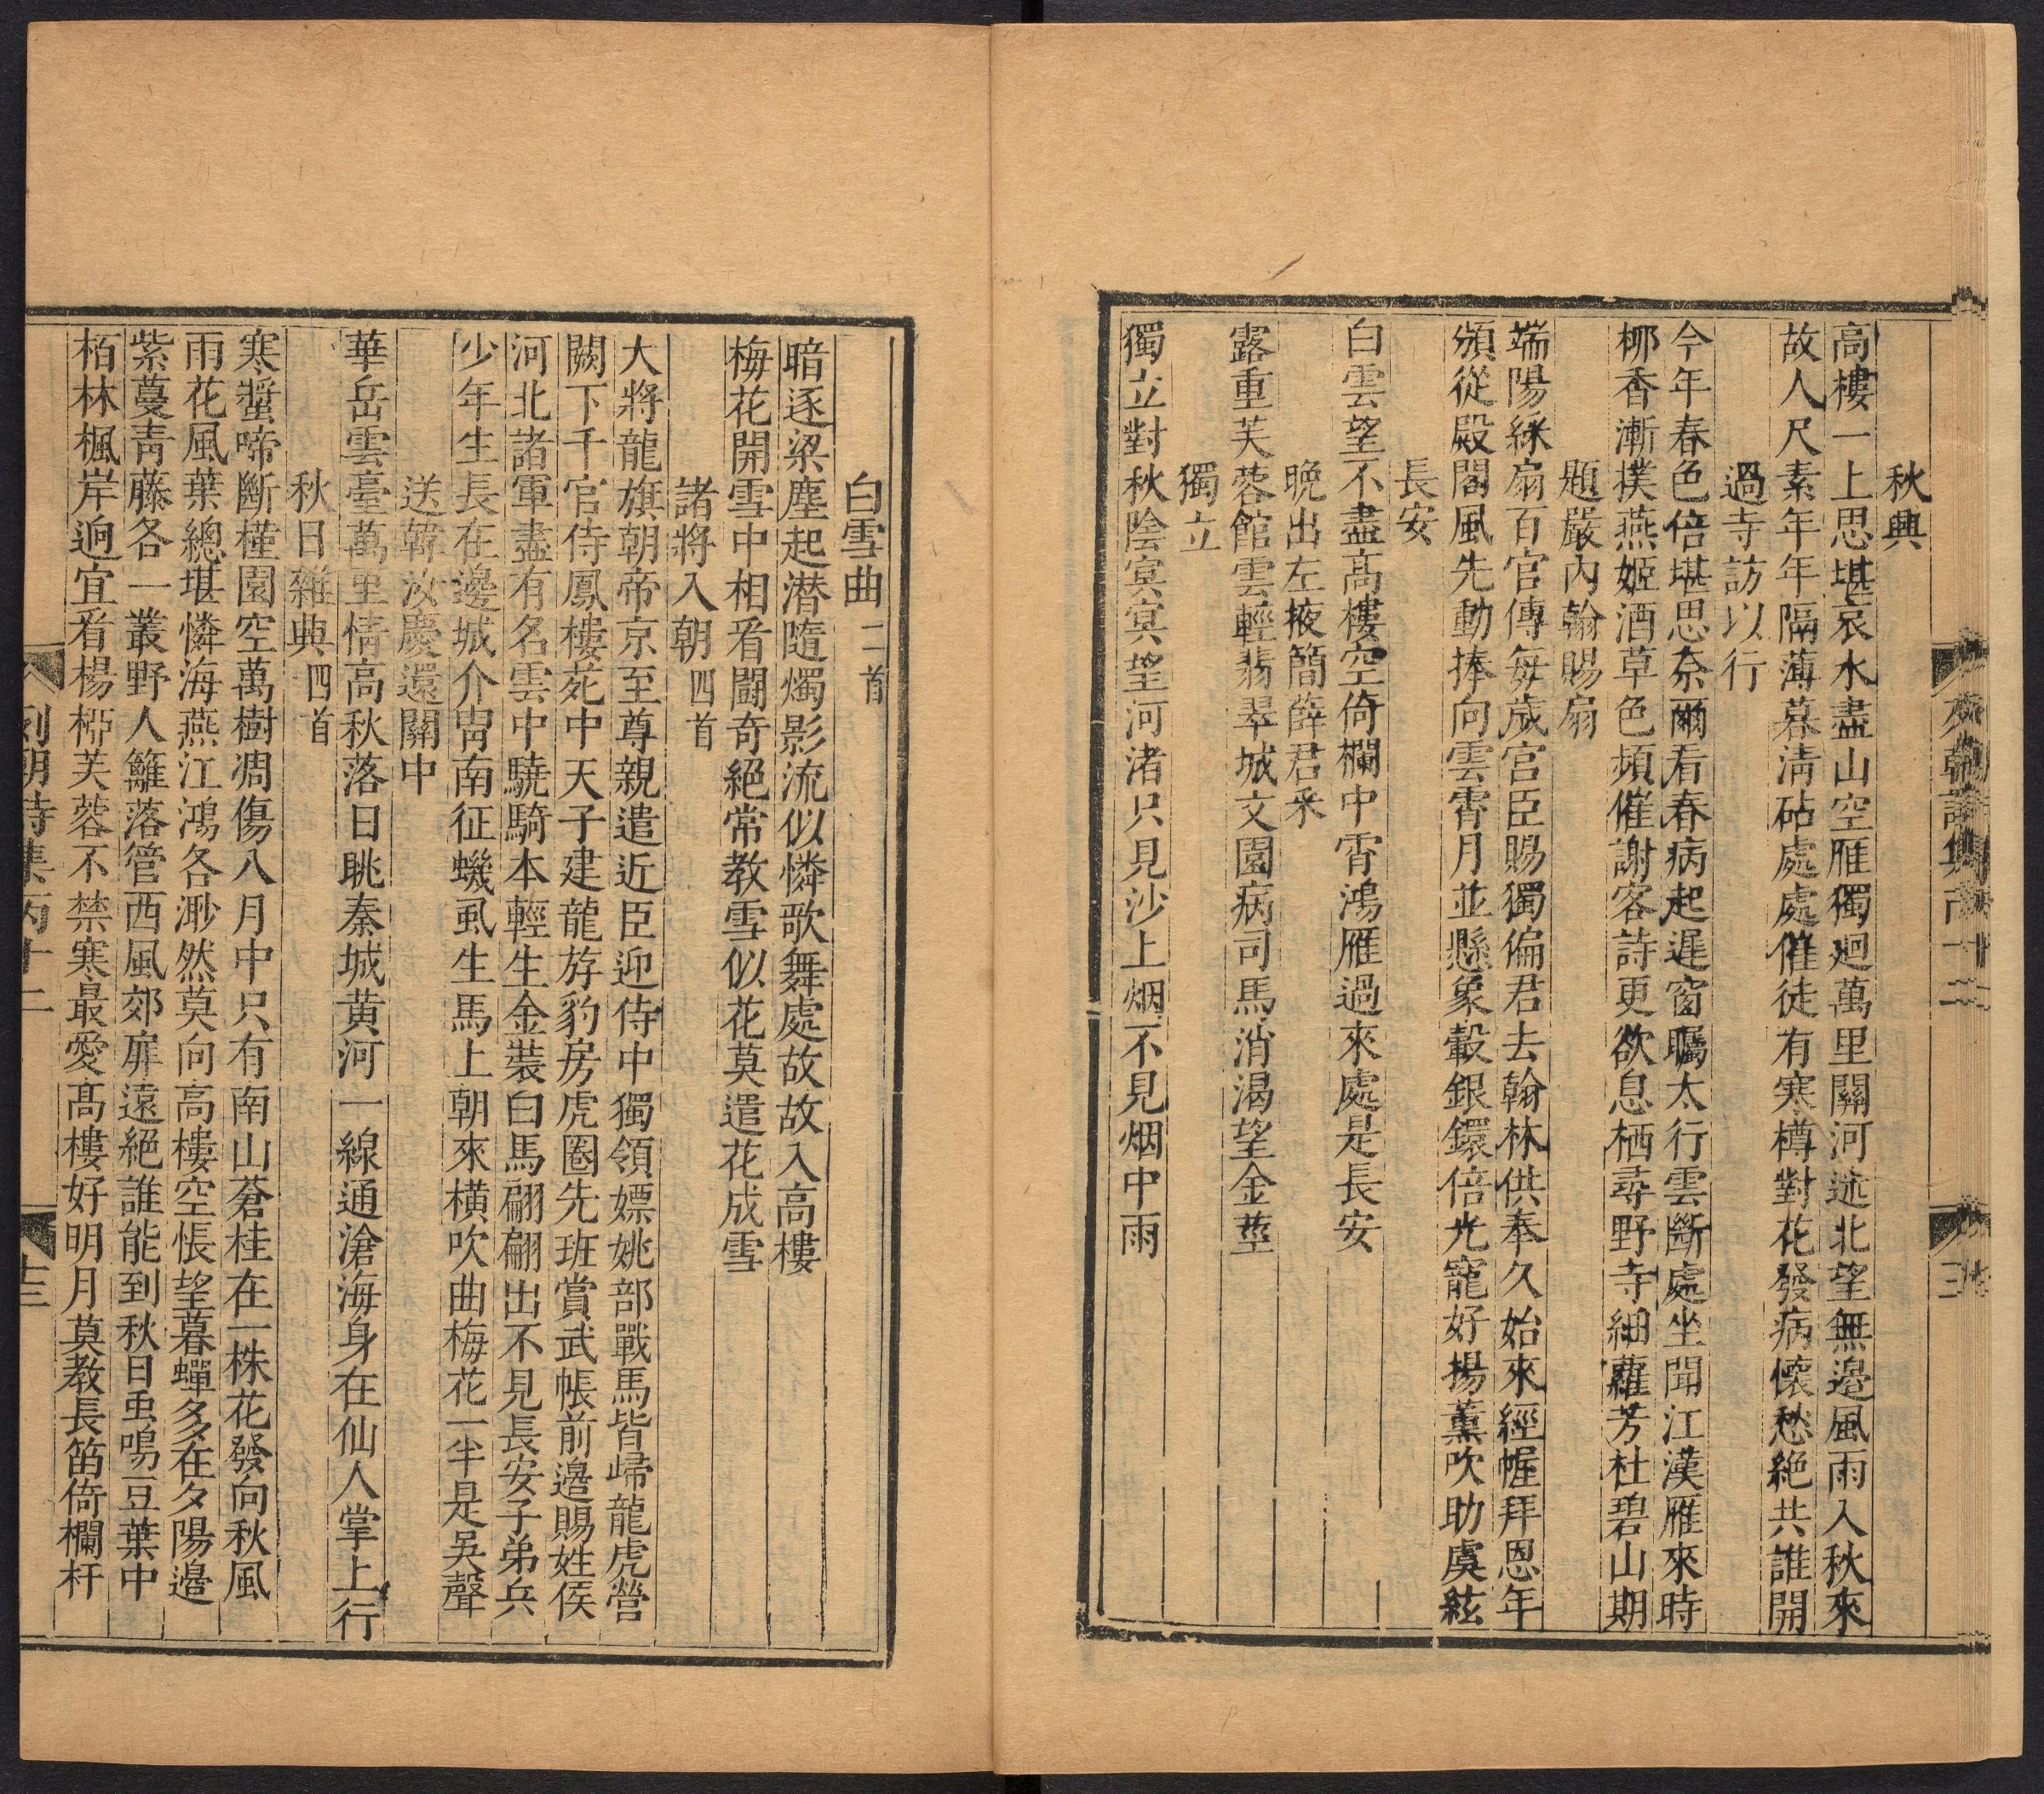 秋興
高樓一上思堪哀水盡山空雁獨廻萬里關河迷北望無邉風雨入秋來
故人尺素年年隔薄暮清砧處處催徒有寒樽對花發病懷愁絶共誰開
過寺訪以行
今年春色倍堪思奈爾看春病起遲窗矚太行雲斷處坐聞江漢雁來時
栁香漸撲燕姬酒草色頻催謝客詩更欲息栖尋野寺細蘿芳杜碧山期
題嚴内翰賜扇
端陽綵扇百官傳每歲宫臣賜獨偏君去翰林供奉久始來經幄拜恩年
頒從殿閣風先動捧向雲霄月並懸象轂銀鐶倍光寵好揚薰吹助虞絃
長安
白雲望不盡高樓空倚欄中宵鴻雁過來處是長安
晩出左掖簡薛君采
露重芙蓉館雲輕翡翠城文園病司馬消渴望金莖
獨立
獨立對秋陰㝠㝠望河渚只見沙上烟不見烟中雨
白雪曲二首
暗逐梁塵起潜隨燭影流似憐歌舞處故故入高樓
梅花開雪中相看鬪奇絶常教雪似花莫遣花成雪
諸將入朝四首
大將龍旗朝帝京至尊親遣近臣迎侍中獨領嫖姚部戰馬皆歸龍虎營
闕下千官侍鳳樓苑中天子建龍斿豹房虎圈先班賞武帳前邉賜姓侯
河北諸軍盡有名雲中驍騎本輕生金裝白馬翩翩出不見長安子弟兵
少年生長在邊城介冑南征蟣虱生馬上朝來横吹曲梅花一半是吳聲
送韓汝慶還關中
華岳雲臺萬里情高秋落日眺秦城黄河一線通滄海身在仙人掌上行
秋日雜興四首
寒螿啼斷槿園空萬樹凋傷八月中只有南山蒼桂在一株花發向秋風
雨花風葉總堪憐海燕江鴻各渺然莫向高樓空悵望暮蟬多在夕陽邉
紫蔓青藤各一叢野人籬落管西風郊扉遠絶誰能到秋日虫鳴豆葉中
栢林楓岸逈宜看楊栁芙蓉不禁寒最愛髙樓好明月莫教長笛倚欄杆
列朝詩集丙十二
十三